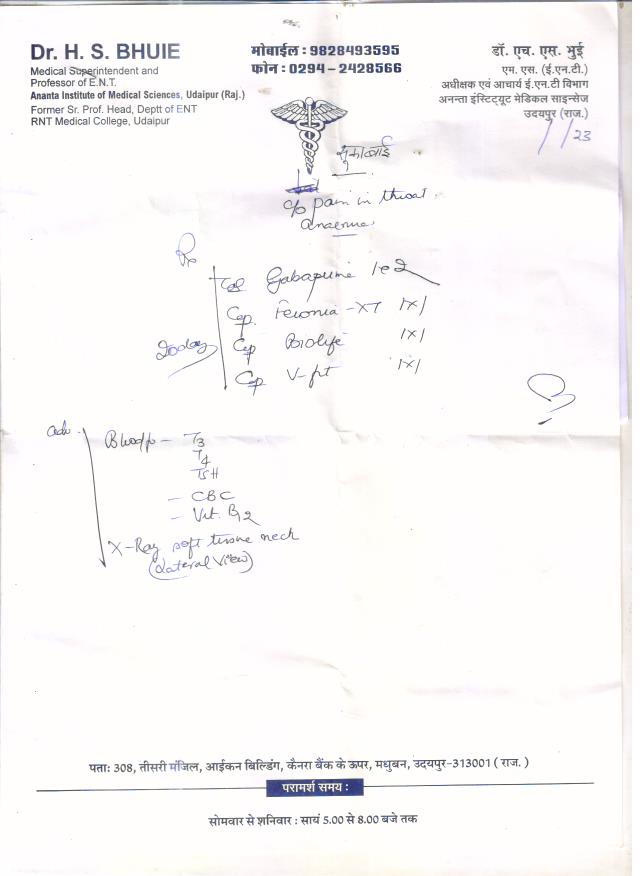 Dr. H. S. BHUIE
Medical Superintendent and
Professor of E.N.T.
Ananta Institute of Medical Sciences, Udaipur (Raj.)
Former Sr. Prof. Head, Deptt of ENT
RNT Medical College, Udaipur
मोबाईल : 9828493595
फोन : 0294 - 2428566
डॉ. एच. एस. भुई
एम. एस. (ई.एन.टी.)
अधीक्षक एवं आचार्य ई.एन.टी विभाग
अनन्ता इंस्टिट्यूट मेडिकल साइन्सेज
उदयपुर (राज.)
/ / 23
c/o pain in throat
Rx
1 e 2
Cap. Feronia - XT 1 X 1
Cap Biolife 1 X 1
Cap V-fit 1 X 1
20 day
adv.
T3
T4
TSH
- CBC
- Vit. B12
X-Ray soft tissue neck
(Lateral View)
पताः 308, तीसरी मंजिल, आईकन बिल्डिंग, कैनरा बैंक के ऊपर, मधुबन, उदयपुर-313001 ( राज. )
परामर्श समय :
सोमवार से शनिवार : सायं 5.00 से 8.00 बजे तक